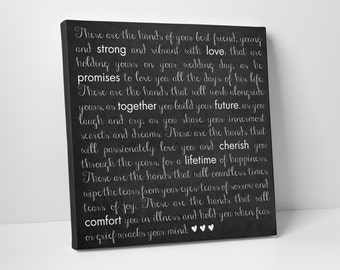 These are the hands of your best friend, young
and strong and vibrant with love, that are
holding yours on your wedding day, as he
promises to love you all the days of his life.
These are the hands that will work alongside
yours, as together you build your future, as you
laugh and cry, as you share your innermost
secrets and dreams. These are the hands that
will passionately love you and cherish you
through the years, for a lifetime of happiness.
These are the hands that will countless times
wipe the tears from your eyes: tears of sorrow and
tears of joy. These are the hands that will
comfort you in illness and hold you when fear
or grief wracks your mind.